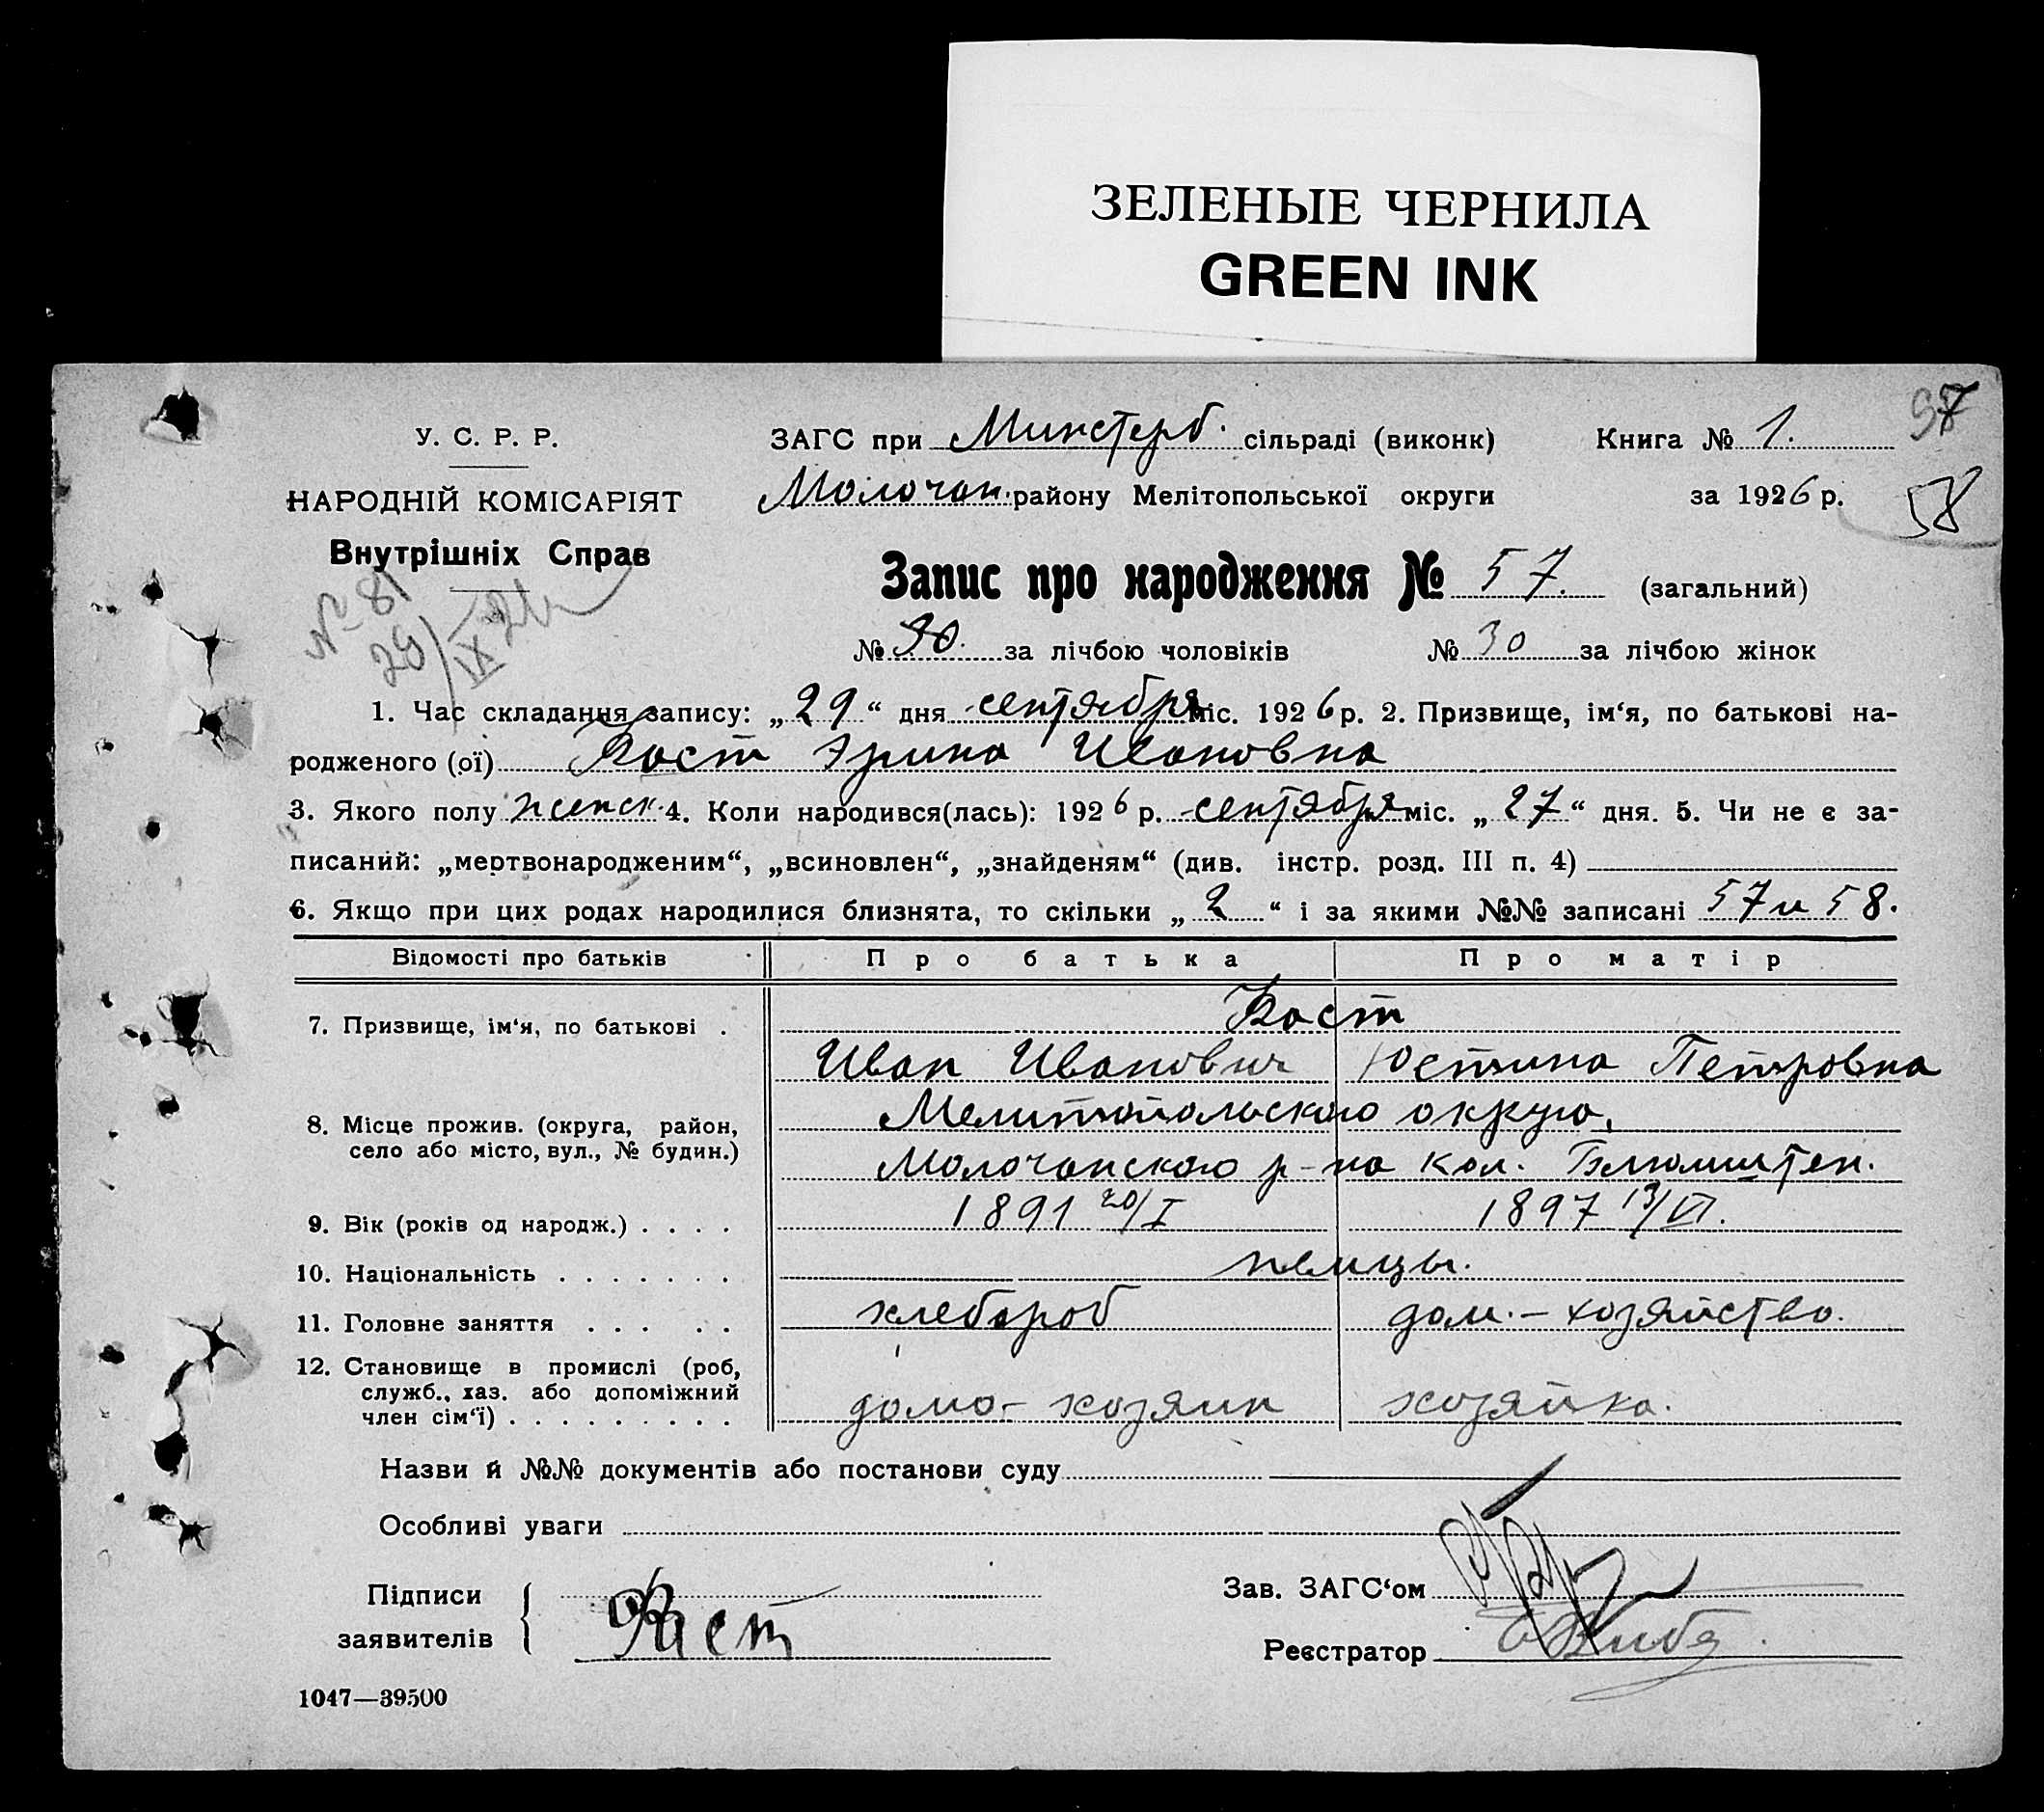 ЗЕЛЕНЫЕ ЧЕРНИЛА
GREEN INK
У. С. Р. Р.
НАРОДНІЙ КОМІСАРІЯТ
Внутрішніх Справ
№ 81
29/IX
ЗАГС при Минстерб. сільраді (виконк) Книга № 1.
Молочан. району Мелітопольської округи за 1926 р.
57
58
Запис про народження № 57. (загальний)
№ 30. за лічбою чоловіків № 30 за лічбою жінок
1. Час складання запису: „29“ дня сентября міс. 1926 р. 2. Призвище, ім‘я, по батькові на-
родженого (ої) Васт Эрина Ивановна
3. Якого полу женск. 4. Коли народився(лась): 1926 р. сентября міс. „27“ дня. 5. Чи не є за-
писаний: „мертвонародженим“, „всиновлен“, „знайденям“ (див. інстр. розд. III п. 4)
6. Якщо при цих родах народилися близнята, то скільки „2“ і за якими №№ записані 57 и 58.
Відомості про батьків Про батька Про матір
7. Призвище, ім‘я, по батькові . Васт
Иван Иванович Юстина Петровна
8. Місце прожив. (округа, район, село або місто, вул., № будин.) Мелитопольского округа,
Молочанского р-на кол. Блюмштен.
9. Вік (років од народж.) . . . . 1891 20/I 1897 13/VI.
10. Національність . . . . . . . немцы.
11. Головне заняття . . . . . хлебороб дом.-хозяйство.
12. Становище в промислі (роб, служб., хаз. або допоміжний член сім‘ї) . . . . . . . . . домо-хозяин хозяйка.
Назви й №№ документів або постанови суду
Особливі уваги
Підписи
заявителів Васт
Зав. ЗАГС‘ом
Реєстратор
1047—39500